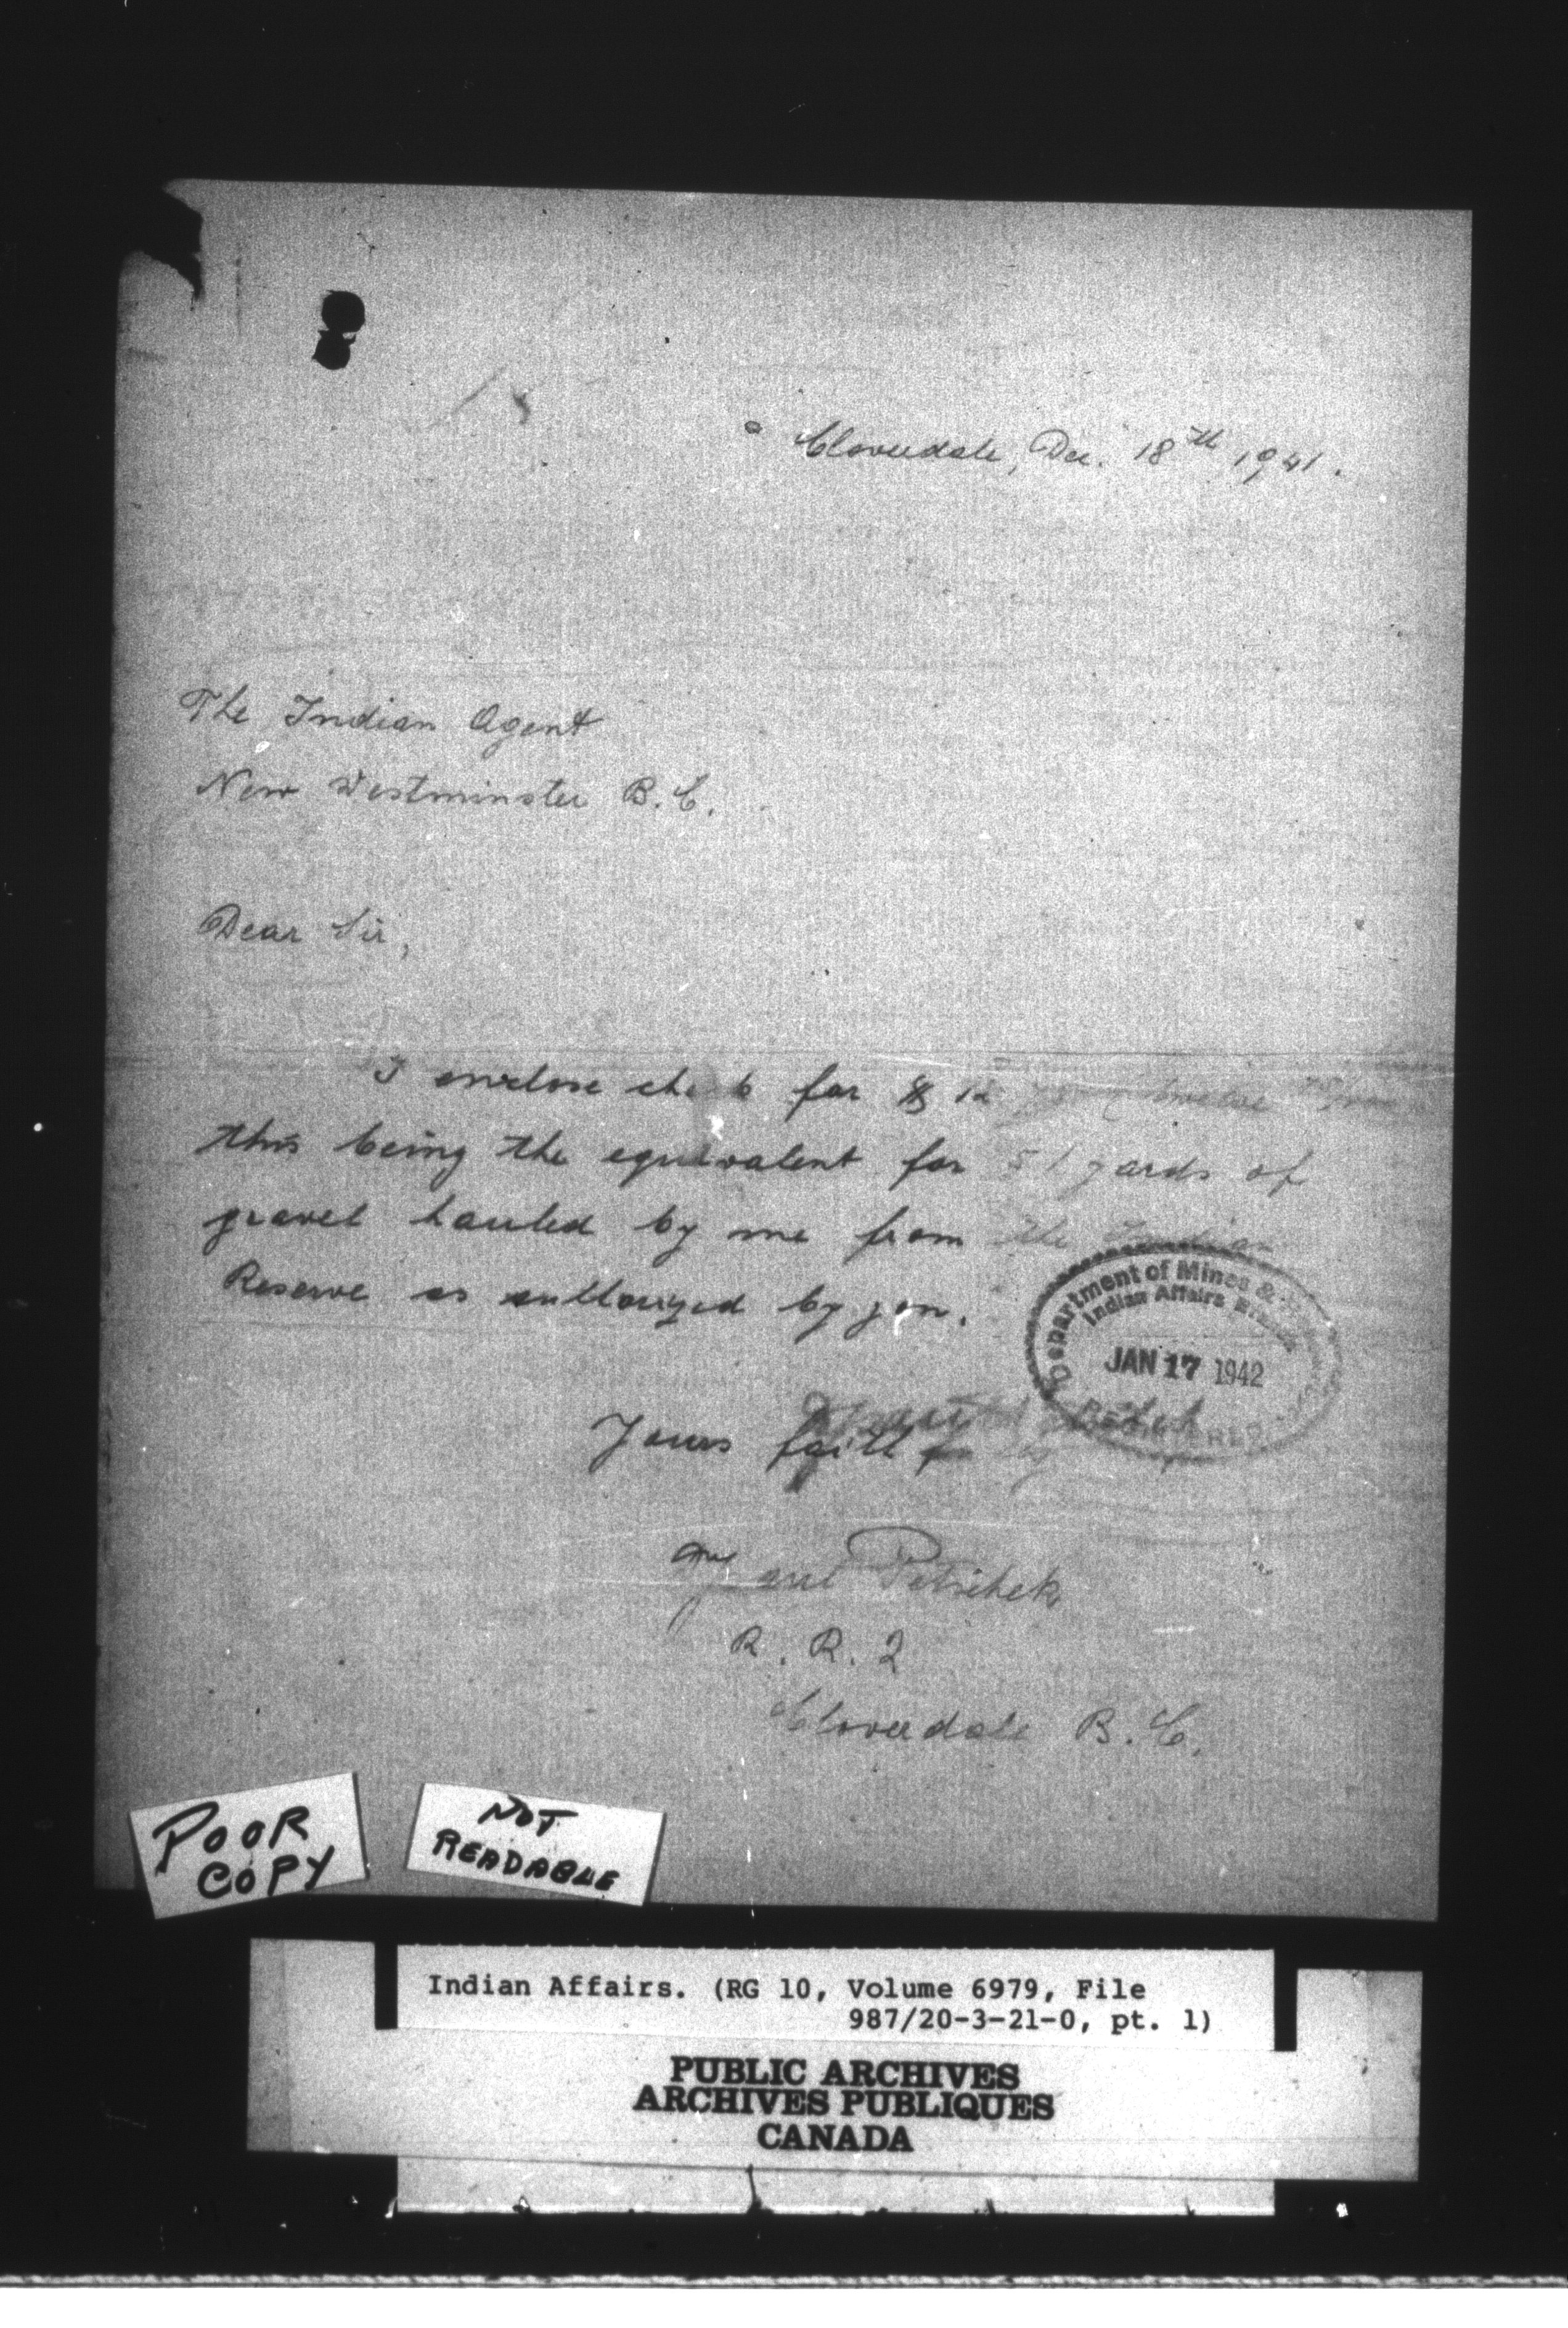 Cloverdale, Dec. 18th 1941.
The Indian Agent
New Westminster B.C.
Dear Sir,
I enclose check for $12 (twelve
this being the equivalent for 51 yards of
gravel hauled by me from the Indian
Reserve as authorized by you.
Department of Mines &
Indian Affairs Branch
JAN 17 1942
Yours faithfully
Paul Petschek
R. R. 2
Cloverdale B.C.
POOR
COPY
NOT
READABLE
Indian Affairs. (RG 10, Volume 6979, File
987/20-3-21-0, pt. 1)
PUBLIC ARCHIVES
ARCHIVES PUBLIQUES
CANADA